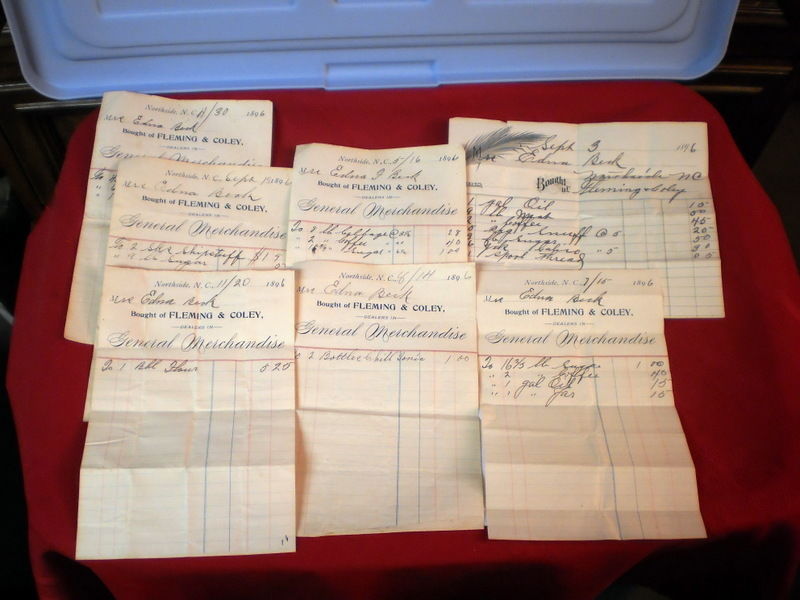 Northside, N.C. 11/30 1896
Mrs Edna Beck
Bought of FLEMING & COLEY,
General Merchandise
Northside, N.C. Sept 1896
Mrs Edna Beck
Bought of FLEMING & COLEY,
DEALERS IN
General Merchandise
To 2 Sks Shipstuff
" lb Sugar
Northside, N.C. 5/16 1896
Mrs Edna J Beck
Bought of FLEMING & COLEY,
DEALERS IN
General Merchandise
To 8 lb Cabbage
" 2 " Coffee 40
Sugar 1 00
Sept 3 1896
Mrs Edna Beck
Northside NC
Bought of Fleming & Coley
gal Oil 15
lb Meat 50
Coffee 45
Snuff @ 5 25
Sugar 50
" 5
Spool Thread 05
Northside, N.C. 11/20 1896
Mrs Edna Beck
Bought of FLEMING & COLEY,
DEALERS IN
General Merchandise
To 1 Bbl Flour 5 25
Northside, N.C. 8/14 1896
Mrs Edna Beck
Bought of FLEMING & COLEY,
DEALERS IN
General Merchandise
To 2 Bottles Chill Tonic 1 00
Northside, N.C. 7/15 1896
Mrs Edna Beck
Bought of FLEMING & COLEY,
DEALERS IN
General Merchandise
To 16 2/3 lb Sugar 1 00
" 2 " Coffee 40
" 1 gal Oil 15
" 1 " Jar 15